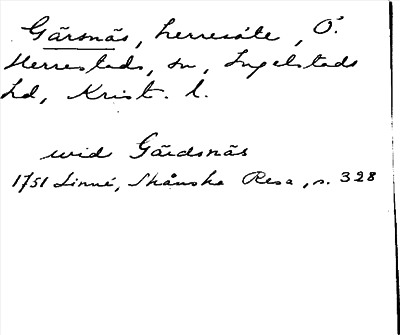 Gärsnäs, herresäte, Ö.
Herrestads, sn, Ingelstads
hd, Krist. l.
wid Gärdsnäs
1751 Linné, Skånska Resa, s. 328